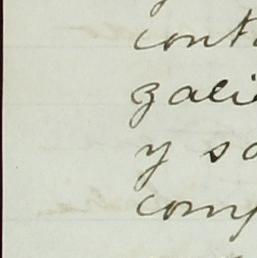 cont
gali
y so
comp